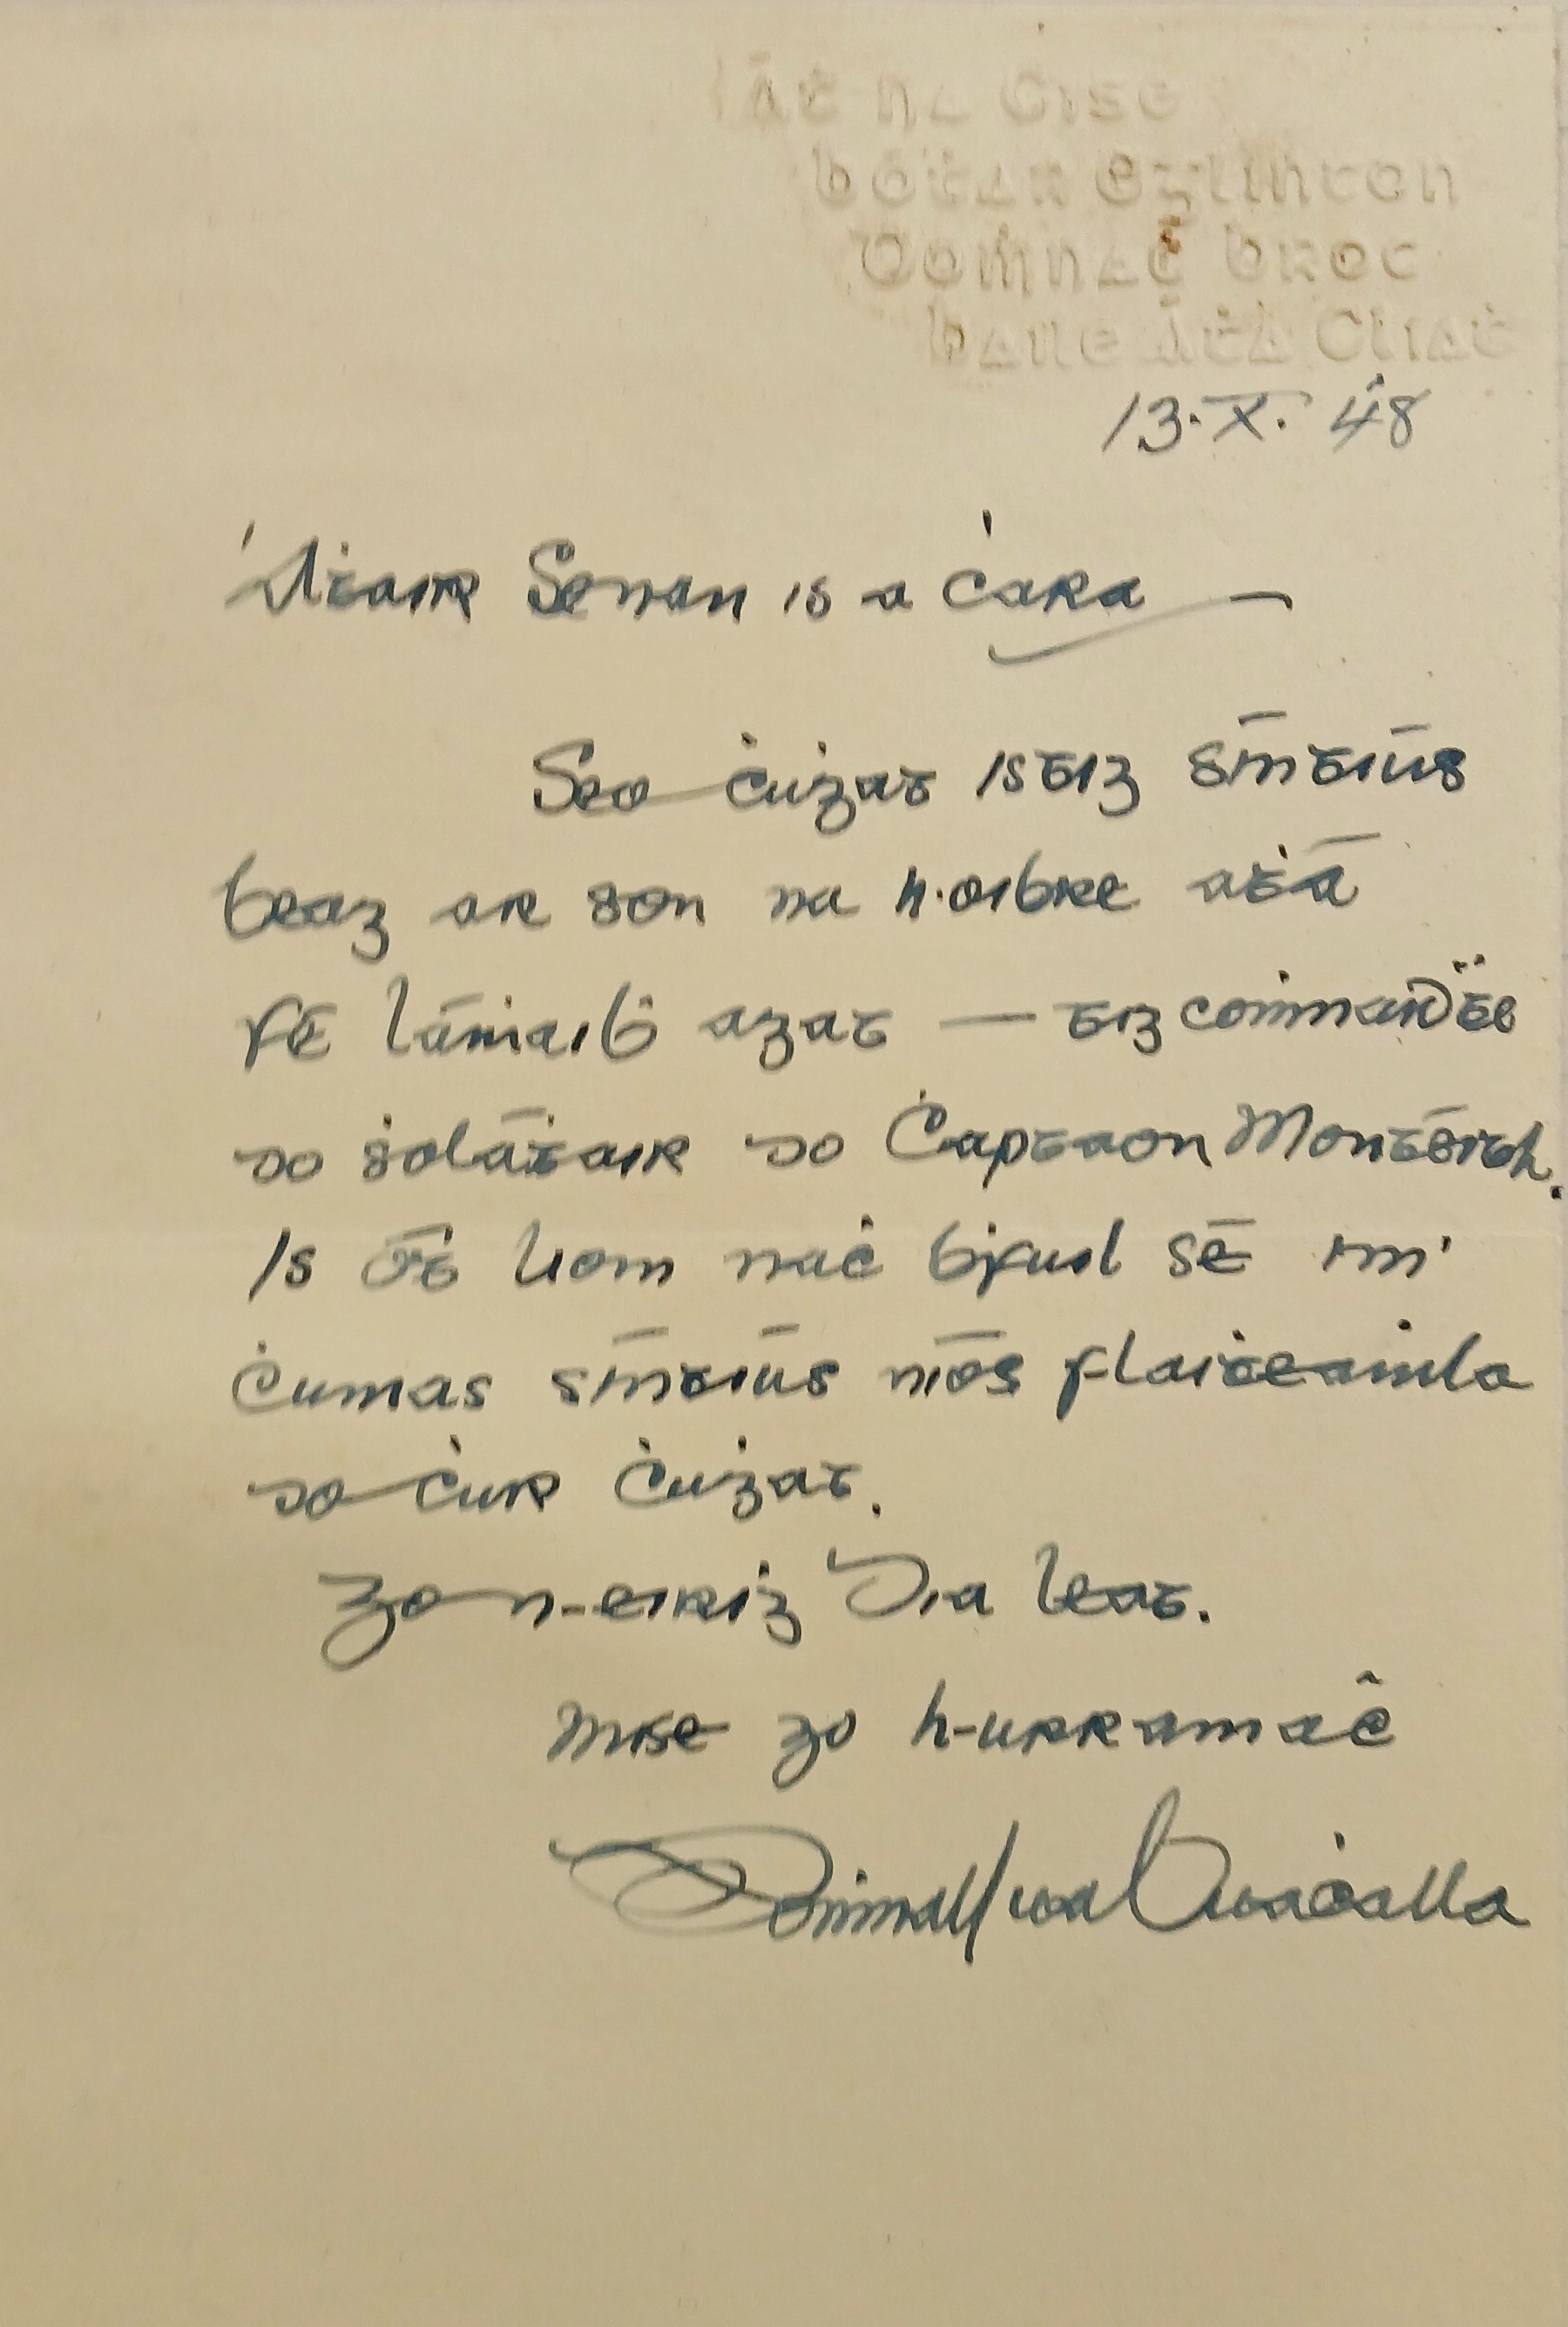 Áṫ na Cise
bóṫar Eglinton
Domnaċ broc
baile Áṫa Cliaṫ
13.X.'48
'Aṫair Senan is a ċara —
Seo ċuġat istig sintiús
beag ar son na h-oibre atá
fé láṁaiḃ agat — tig
do soláṫair do Ċaptaon Monteith.
Is oṫ liom naċ ḃfuil sé im'
ċumas sintiús níos flaiṫeaṁla
do ċur ċuġat.
go n-eiriġ Dia leat.
Mise go h-urramaċ
Doṁnall ua Buaċalla